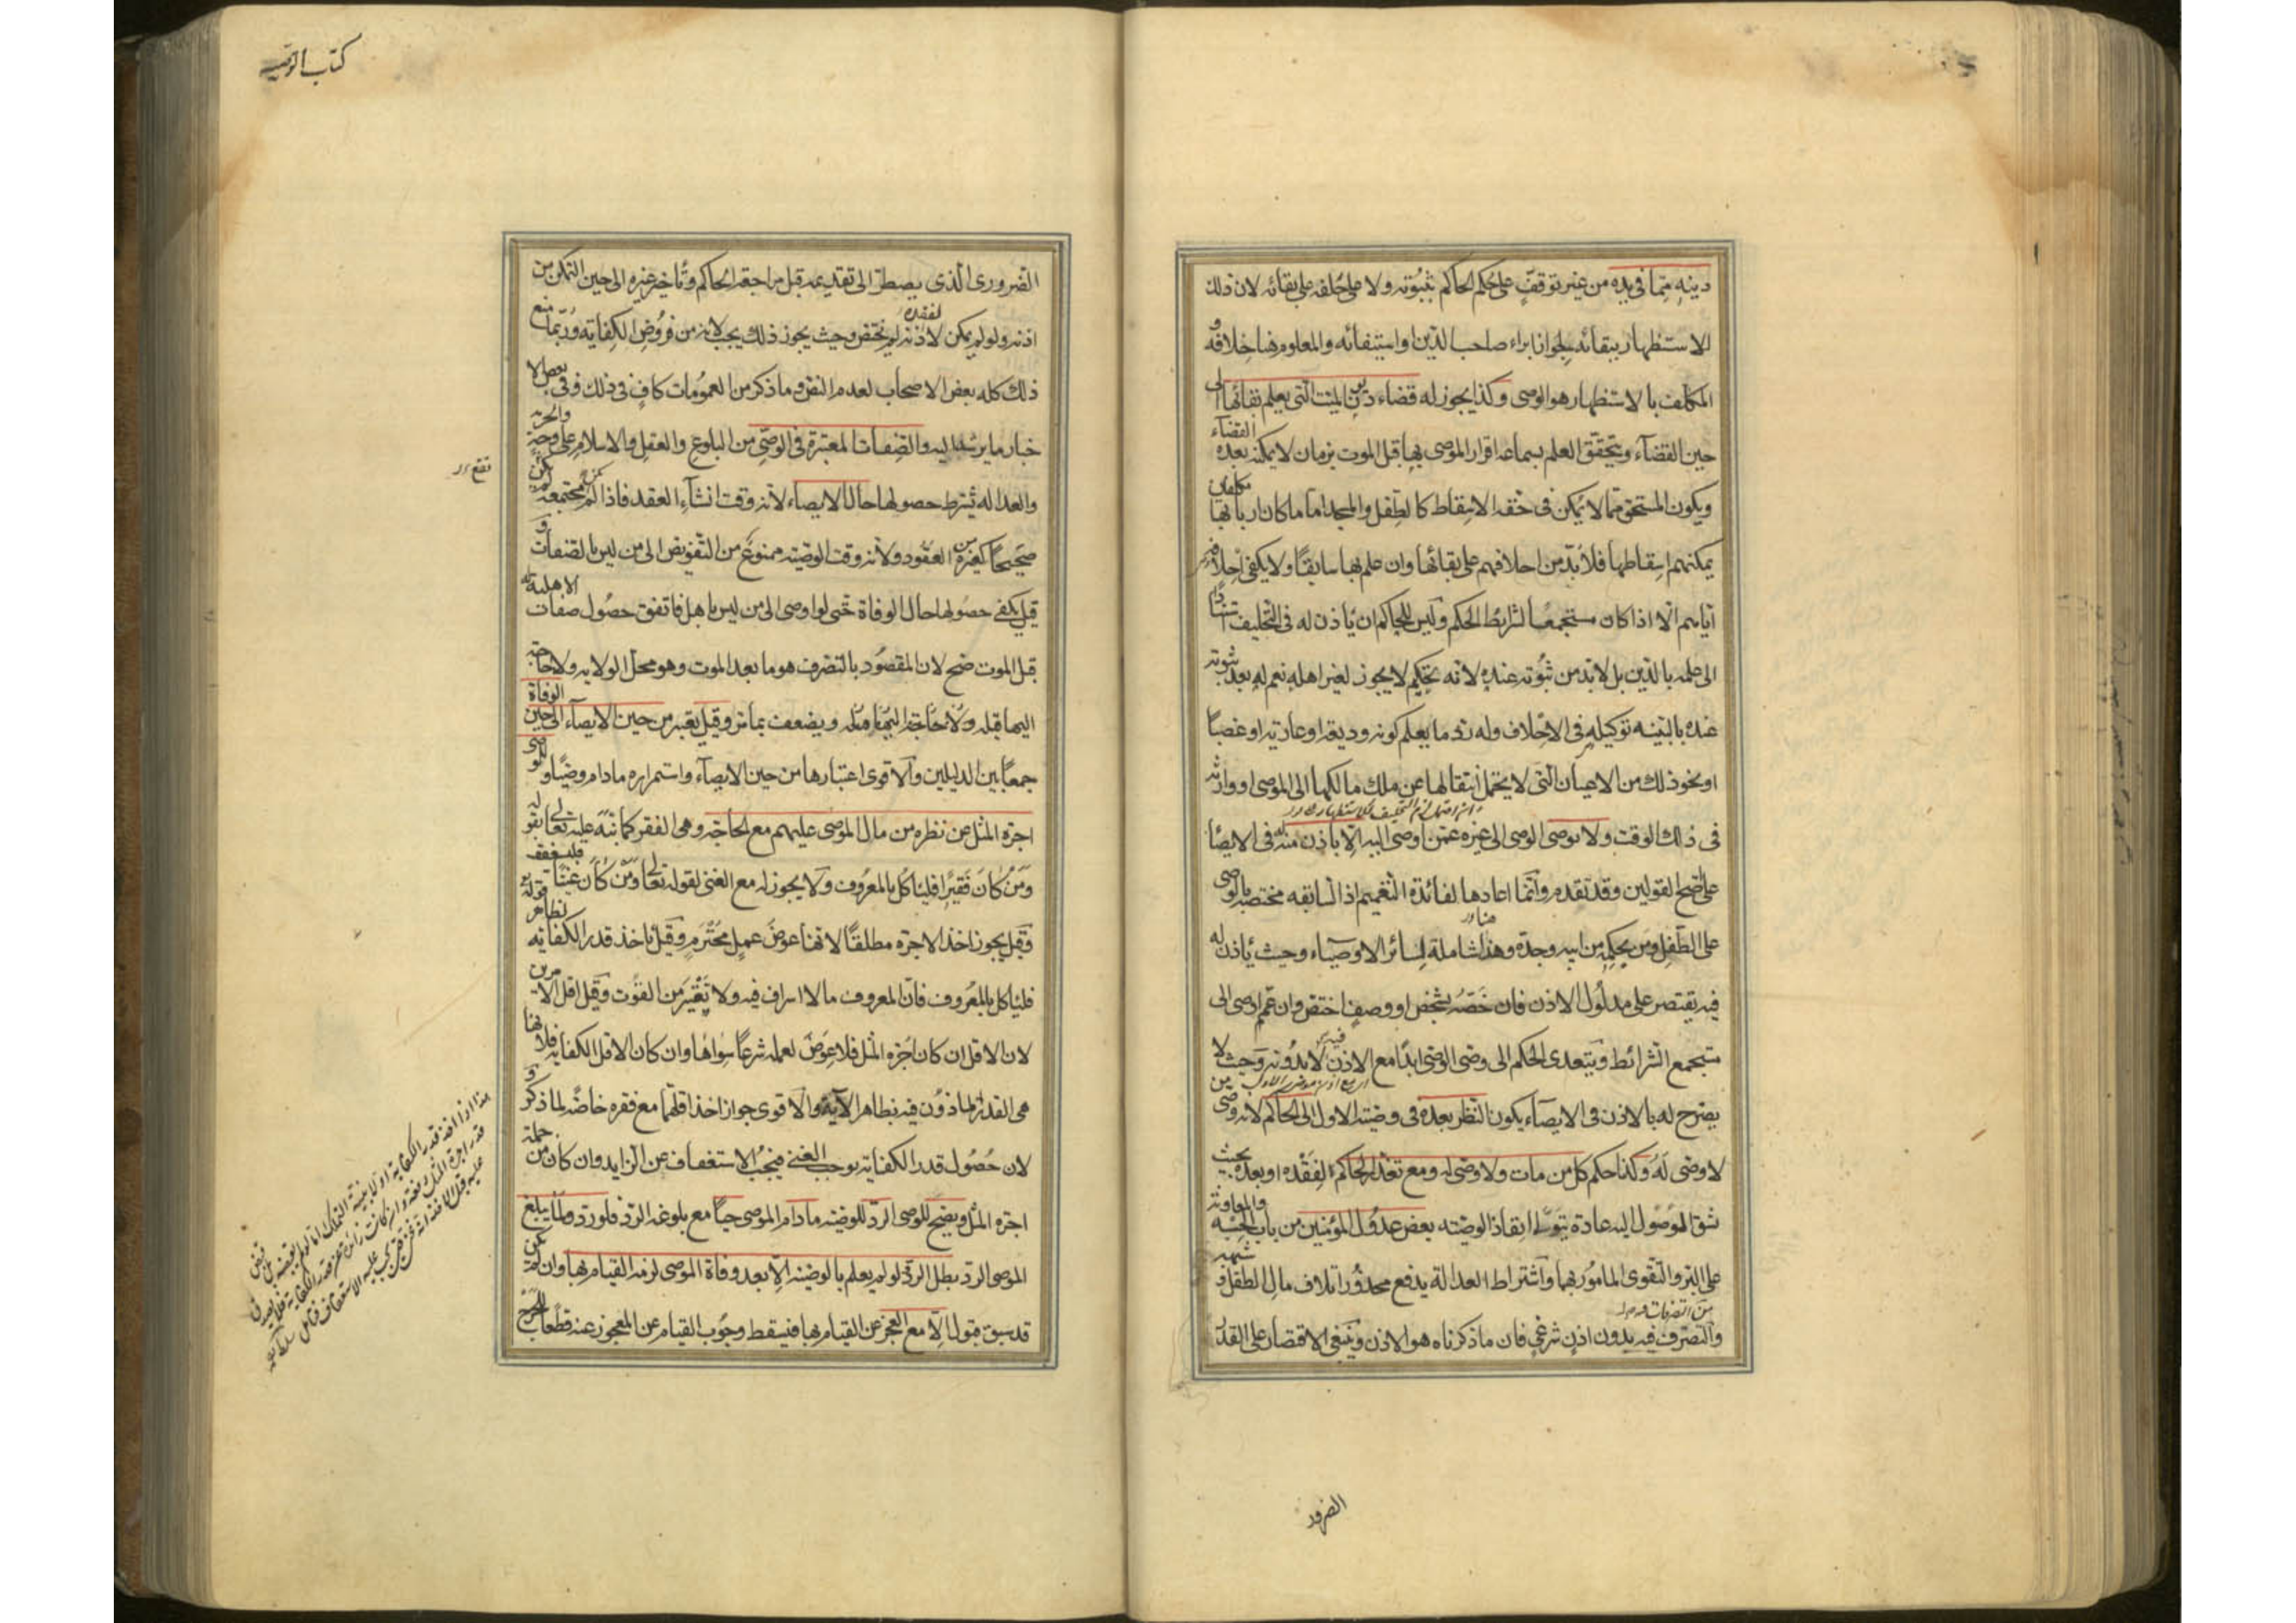 دينه مما فى يده من غير توقف على حكم الحاكم بثبوته ولا على حلفه على بقائه لان ذلك
الاستظهار ببقائه لجواز ابراء صاحب الدين او استيفائه والمعلوم هنا خلافه و
المكلف بالاستظهار هو الوصى وكذا يجوز له قضاء ديون الميت التى يعلم بقائها الى
حين القضآء ويتحقق العلم بسماعه اقرار الموصى بها قبل الموت بزمان لا يمكنه بعده القضآء
ويكون المستحق مما لا يمكن فى حقه الاسقاط كالطفل والمسجد اما ما كان اربابها مكلفين
يمكنهم اسقاطها فلا بد من احلافهم على بقائها وان علم بها سابقا ولا يكفى احلافه
اياهم الا اذا كان مستجمعا لشرائط الحكم وليس للحاكم ان يأذن له فى التحليف استنادا
الى علمه بالدين بل لا بد من ثبوته عنده لانه تحكيم لا يجوز لغير اهله نعم له بعد ثبوته
عنده بالبينه توكيله فى الاحلاف وله رد ما يعلم كونه وديعة او عارية او غصبا
او نحو ذلك من الاعيان التى لا يحتمل انتقالها عن ملك مالكها الى الموصى او وارثه
فى ذلك الوقت ولا يوصى الوصى الى غيره عمن اوصى اليه الا باذن منه فى الايصا
على اصح القولين وقد تقدم وانما اعادها لفائدة التعميم اذ السابقه مختصه بالوصى
على الطفل ومن بحكمه من ابيه وجده وهنا شاملة لسائر الاوصيآء وحيث يأذن له
فيه يقتصر على مدلول الاذن فان خصه بشخص او وصف اختص وان عمم اوصى الى
مستجمع الشرائط ويتعدى الحكم الى وصى الوصى ابدا مع الاذن فيه لا بدونه وحيث لا
يصرح له بالاذن فى الايصآء يكون النظر بعده فى وصية الاول الى الحاكم لانه وصى من
لا وصى له وكذا حكم كل من مات ولا وصى له ومع تعذر الحاكم لفقده او بعده بحيث
يشق الوصول اليه عادة يتولى انفاذ الوصيه بعض عدول المؤمنين من باب الحسبه والمعاونة
على البر والتقوى المامور بها واشتراط العدالة يدفع محذور اتلاف مال الطفل وشبهه
من التصرفات
والتصرف فيه بدون اذن شرعى فان ما ذكرناه هو الاذن وينبغى الاقتصار على القدر
الضرور
كتاب الوصيه
الضرورى الذى يضطر الى تقديمه قبل مراجعة الحاكم وتأخير غيره الى حين التمكن من
اذنه ولو لم يمكن لفقده لم يختص وحيث يجوز ذلك يجب لانه من فروض الكفايه وربما منع
ذلك كله بعض الاصحاب لعدم النص وما ذكر من العمومات كاف فى ذلك وفى بعض الا
خبار ما يرشد اليه والصفات المعتبرة فى الوصى من البلوغ والعقل والاسلام على وجه والحريه
والعداله يشترط حصولها حال الايصاء لانه وقت انشآء العقد فاذا لم تكن مجتمعه لم يكن
صحيحا كغيره من العقود ولانه وقت الوصيه ممنوع من التفويض الى من ليس بالصفات و
قيل يكفى حصولها حال الوفاة حتى لو اوصى الى من ليس باهل فاتفق حصول صفات الاهلية له
قبل الموت صح لان المقصود بالتصرف هو ما بعد الموت وهو محل الولايه ولا حاجة
اليها قبله ويضعف بما مر وقيل يعتبر من حين الايصآء الى حين الوفاة
جمعا بين الدليلين والاقوى اعتبارها من حين الايصآء واستمراره ما دام وصيا وللوصى
اجرة المثل عن نظره من مال الموصى عليهم مع الحاجة وهى الفقر كما نبه عليه تعالى بقوله
ومن كان فقيرا فليأكل بالمعروف ولا يجوز له مع الغنى لقوله تعالى ومن كان غنيا فليستعفف
وقيل يجوز اخذ الاجرة مطلقا لانها عوض عمل محترم وقيل ياخذ قدر الكفايه لظاهر قوله
فليأكل بالمعروف فان المعروف ما لا اسراف فيه ولا تقتير من القوت وقيل اقل الامرين
لان الاقل ان كان اجرة المثل فلا عوض لعمله شرعا سواها وان كان الاقل الكفايه فلانها
هى القدر الماذون فيه بظاهر الآية والاقوى جواز اخذ اقلهما مع فقره خاصه لما ذكر و
لان حصول قدر الكفايه يوجب الغنى فيجب الاستعفاف عن الزايد وان كان من جملة
اجرة المثل ويصح للوصى الرد للوصيه ما دام الموصى حيا مع بلوغه الرد فلو رد ولما يبلغ
الموصى الرد بطل الرد ولو لم يعلم بالوصية الا بعد وفاة الموصى لزمه القيام بها وان لم يكن
قد سبق قبول الا مع العجز عن القيام بها فيسقط وجوب القيام عن المعجوز عنه قطعا للحرج